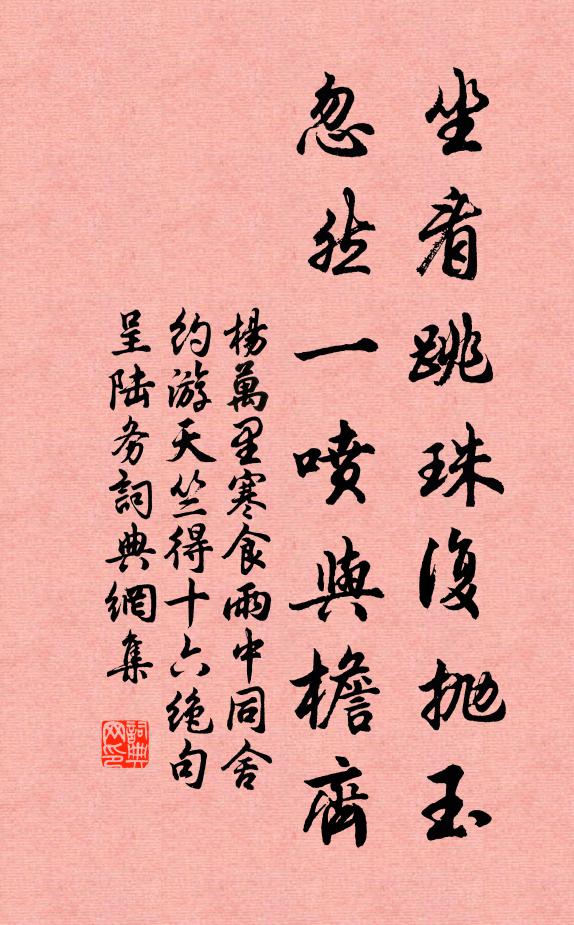 坐看跳珠復抛玉
忽然一噴與檐齊
楊萬里寒食雨中同舍
約游天竺得十六絕句
呈陆务詞典網集
詞典
网印